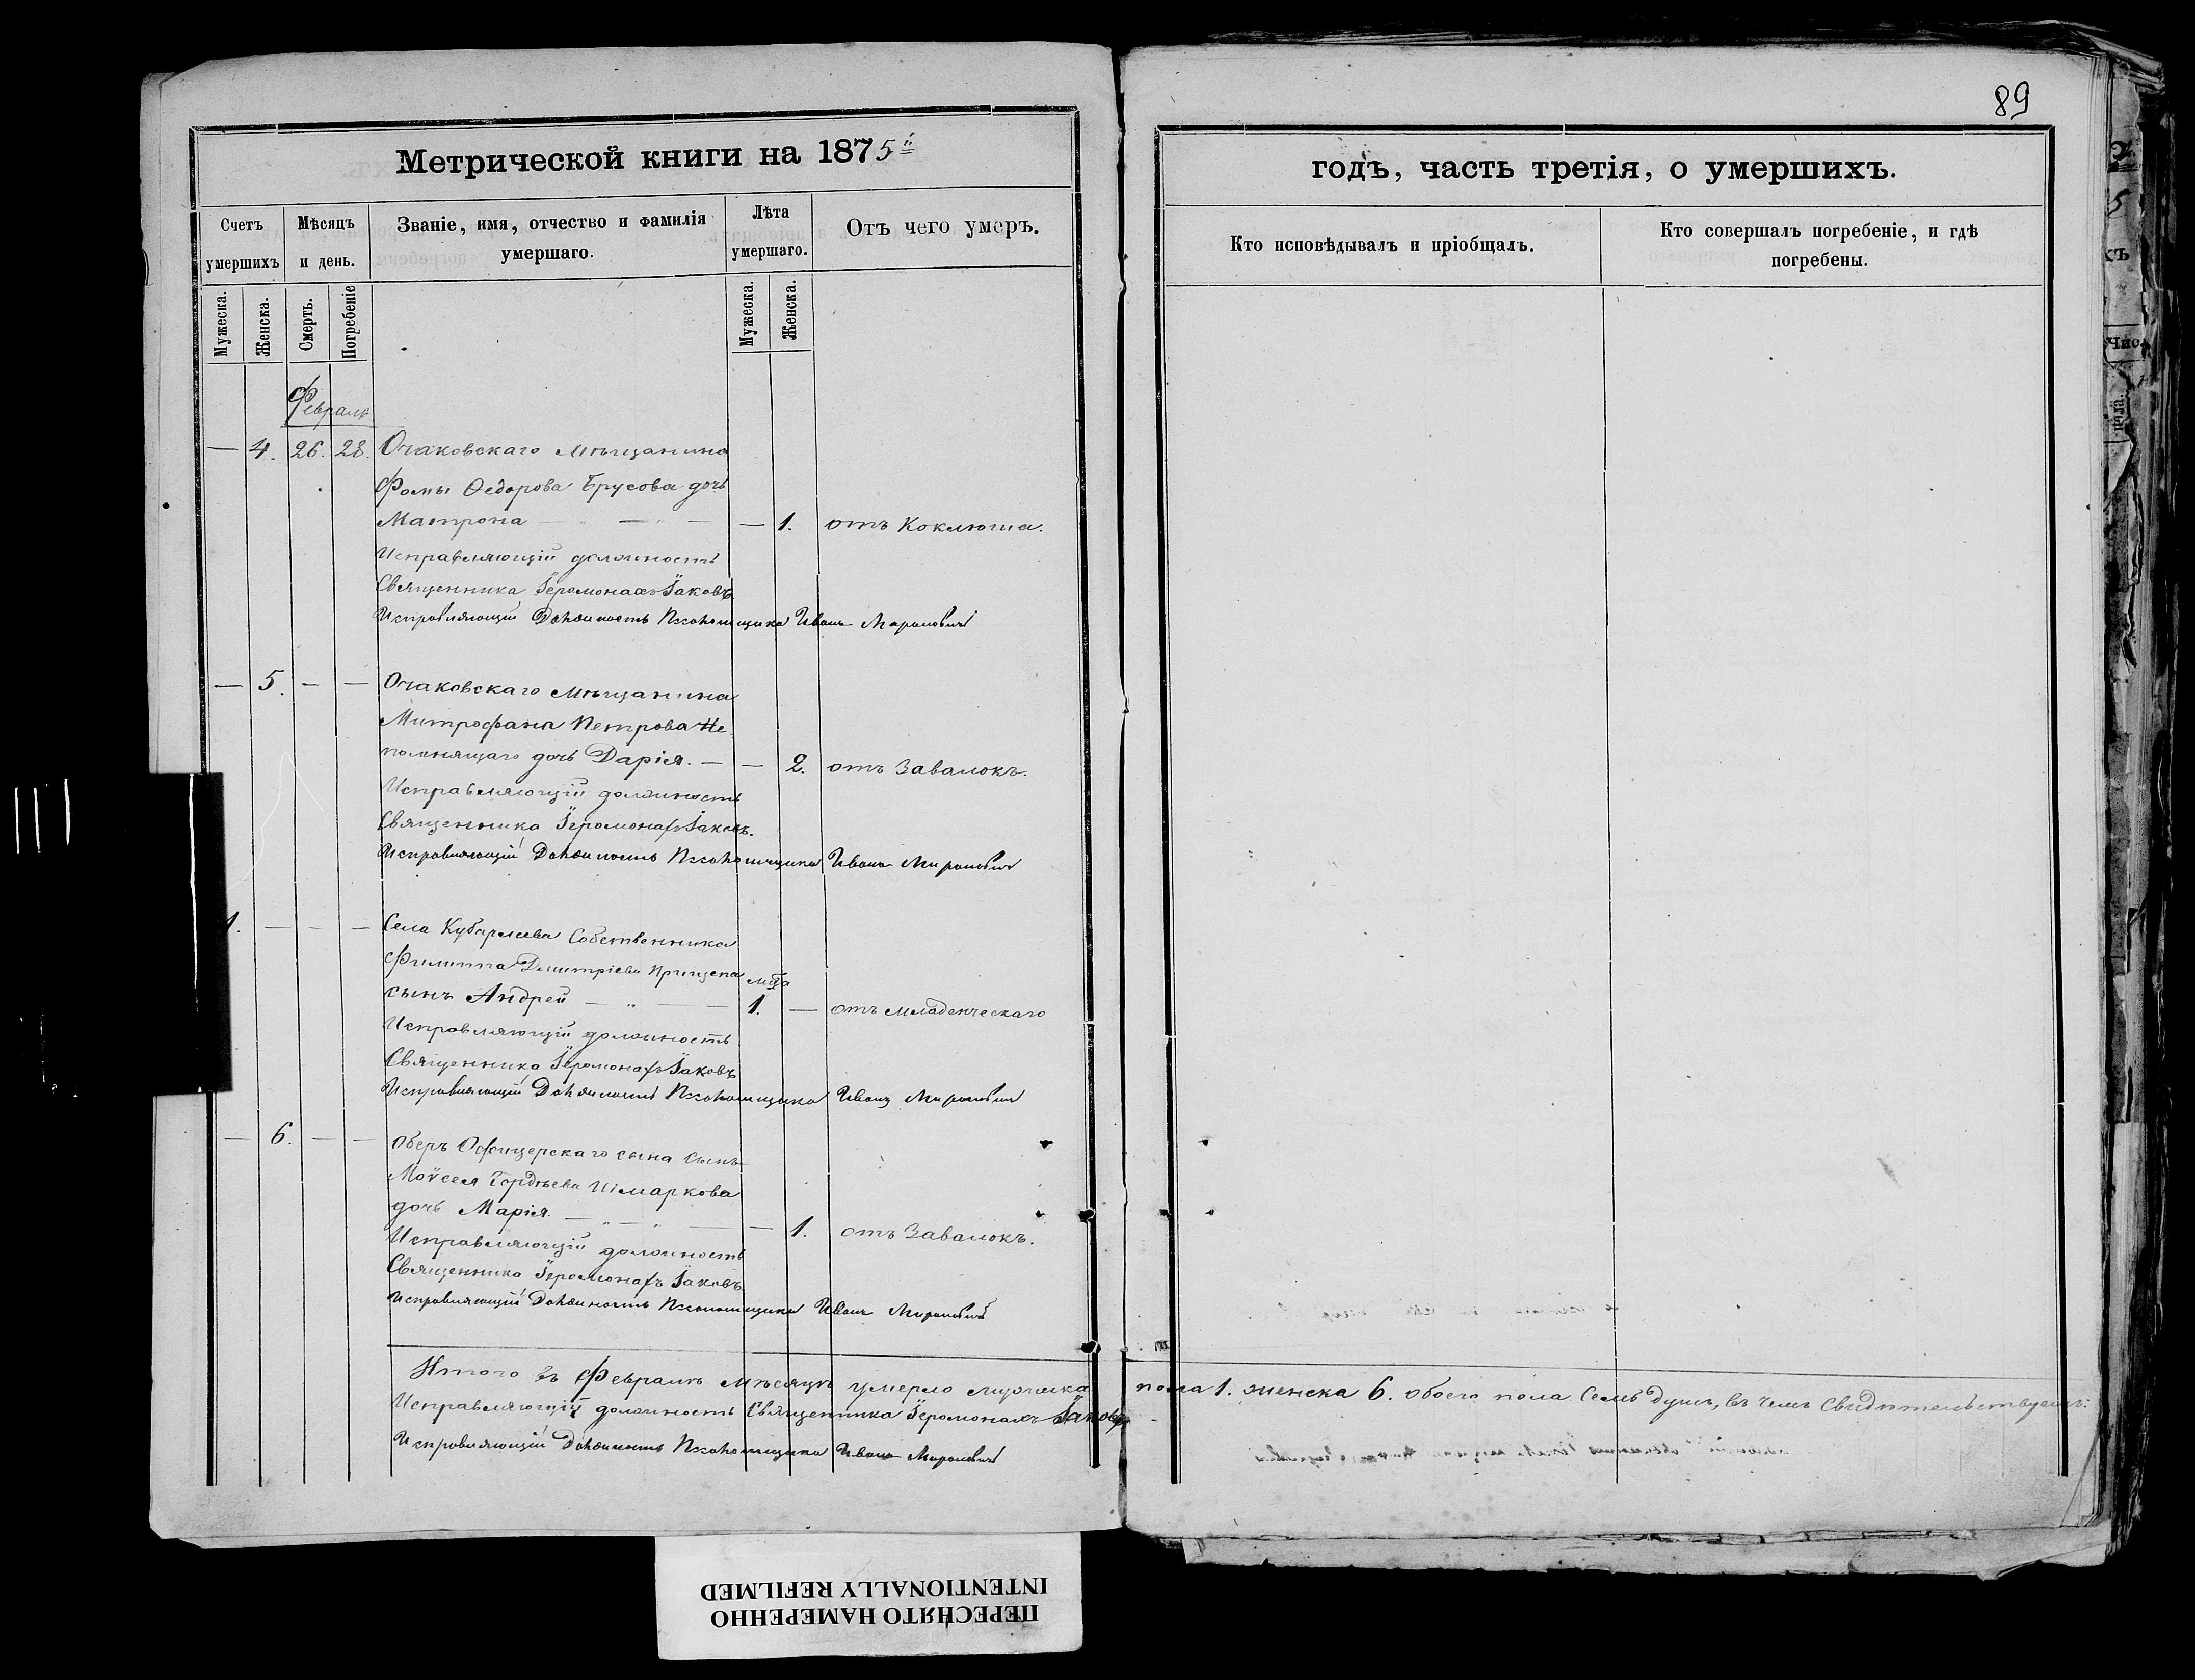 89
Метрической книги на 1875й
годъ, часть третія, о умершихъ.
Счетъ умершихъ
Мѣсяцъ и день.
Званіе, имя, отчество и фамилія умершаго.
Лѣта умершаго.
Отъ чего умеръ.
Кто исповѣдывалъ и пріобщалъ.
Кто совершалъ погребеніе, и гдѣ погребены.
Мужеска.
Женска.
Смерть.
Погребеніе
Мужеска.
Женска.
Февраль
— 4. 26. 28. Очаковскаго мѣщанина
Фомы Ѳедорова Брусова дочь
Матрона — „ — „ — — 1. отъ Коклюша.
Исправляющій должность
Священника Іеромонахъ Іаковъ
Исправляющій Должность Псаломщика Иванъ Мироновичъ
— 5. — — Очаковскаго мѣщанина
Митрофана Петрова Не
помнящаго дочь Дарія. — — 2. отъ Завалокъ.
Исправляющій должность
Священника Іеромонахъ Іаковъ.
Исправляющій Должность Псаломщика Иванъ Мироновичъ
1. — — — Села Собственника
Филиппа Дмитріева Прищепа
сынъ Андрей — „ — мца 1. — отъ младенческаго
Исправляющій должность
Священника Іеромонахъ Іаковъ
Исправляющій Должность Псаломщика Иванъ Мироновичъ
— 6. — — Оберъ Офицерскаго сына Сынъ
Моѵсея Гордѣева Шмаркова
дочь Марія. — „ — „ — — 1. отъ Завалокъ.
Исправляющій должность
Священника Іеромонахъ Іаковъ
Исправляющій Должность Псаломщика Иванъ Мироновичъ
Итого въ Февралѣ мѣсяцѣ умерло мужеска пола 1. женска 6. обоего пола Семь душъ, въ чемъ Свидѣтельствуемъ:
Исправляющій должность Священника Іеромонахъ Іаковъ
Исправляющій Должность Псаломщика Иванъ Мироновичъ
ПЕРЕСНЯТО НАМЕРЕННО
INTENTIONALLY REFILMED